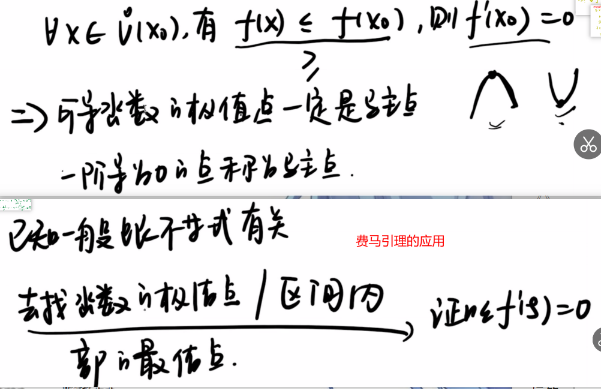 ∀x∈Ů(x₀),有 f(x) ≤ f(x₀),则 f'(x₀)=0
≥
⇒ 可导函数的极值点一定是驻点
一阶导为0的点称为驻点.
已知一般跟不等式有关
费马引理的应用
去找函数的极值点/区间内
部的最值点.
证明 f'(ξ)=0